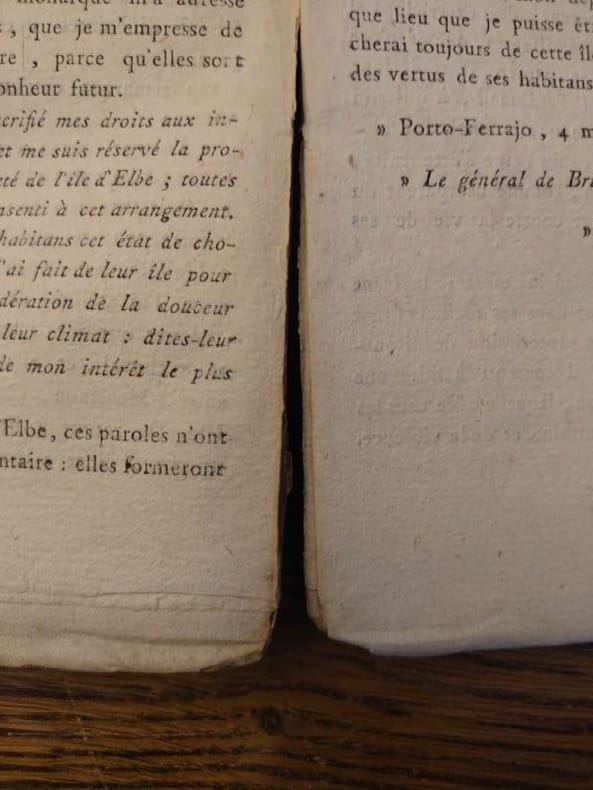 monarque m'a adressé
, que je m'empresse de
re , parce qu'elles sort
onheur futur.
crifié mes droits aux in-
et me suis réservé la pro-
eté de l'île d'Elbe ; toutes
nsenti à cet arrangement.
habitans cet état de cho-
'ai fait de leur île pour
dération de la douceur
leur climat : dites-leur
de mon intérêt le plus
'Elbe, ces paroles n'ont
ntaire : elles formeront
que lieu que je puisse êt
cherai toujours de cette îl
des vertus de ses habitans
» Porto-Ferrajo , 4 m
» Le général de Br
»